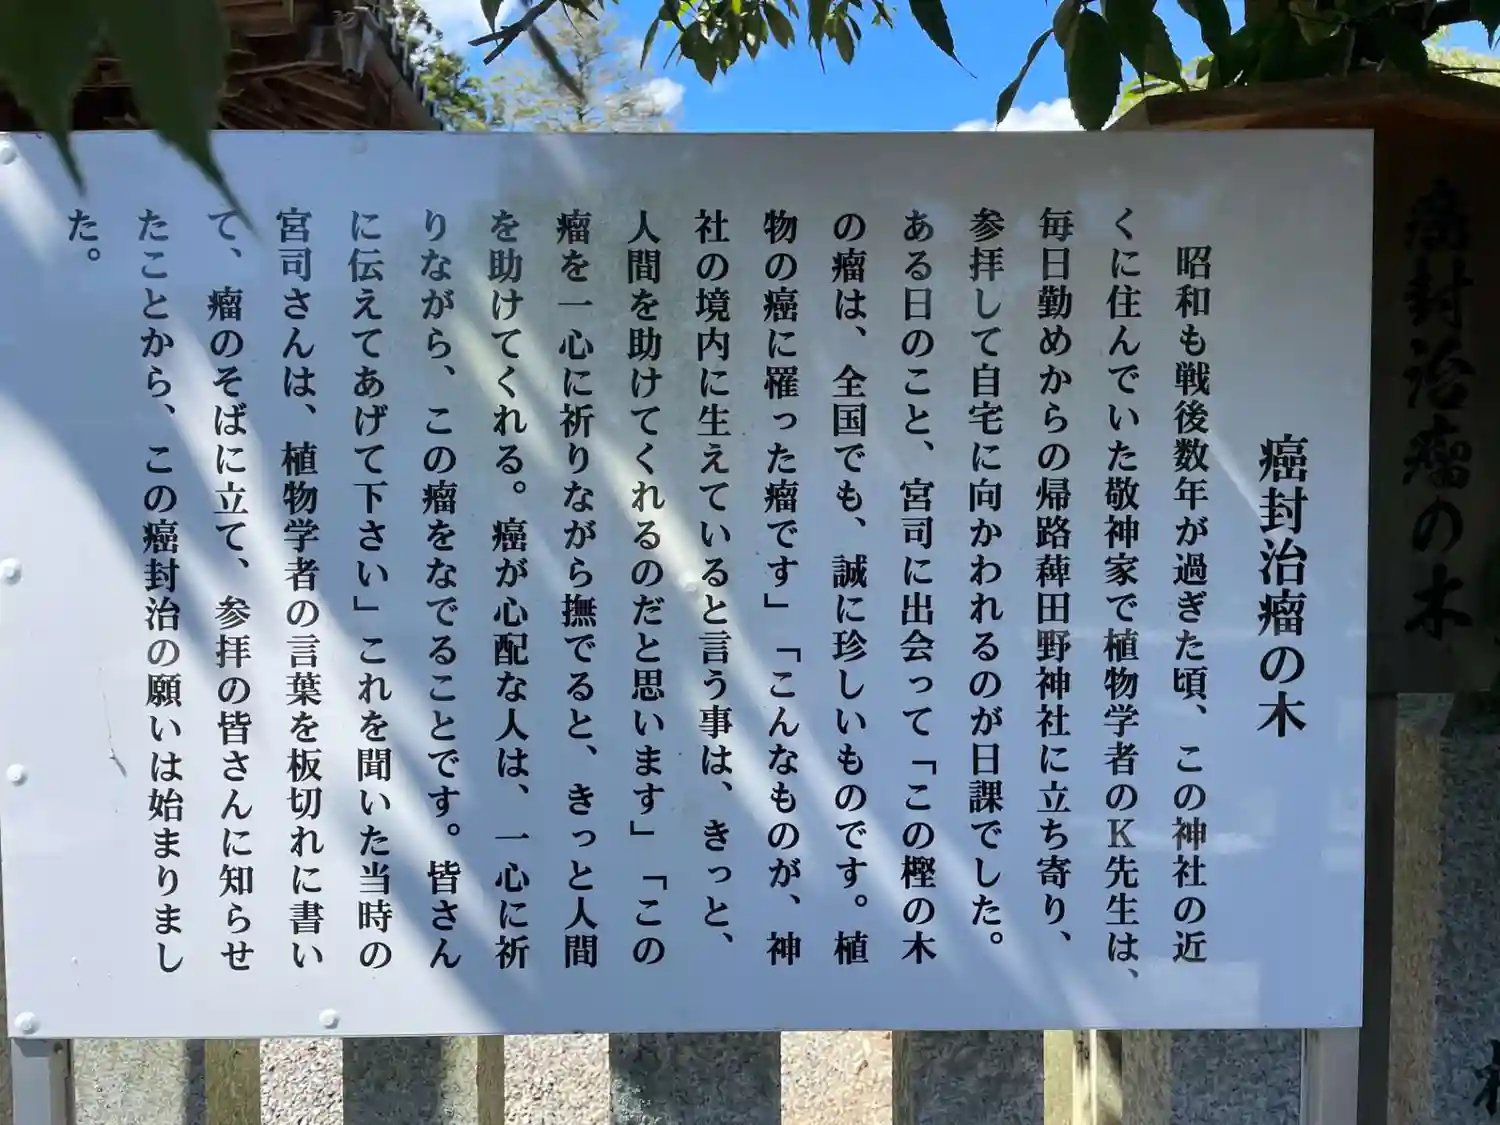 癌封治瘤の木
癌封治瘤の木
昭和も戦後数年が過ぎた頃、この神社の近
くに住んでいた敬神家で植物学者のK先生は、
毎日勤めからの帰路薭田野神社に立ち寄り、
参拝して自宅に向かわれるのが日課でした。
ある日のこと、宮司に出会って「この樫の木
の瘤は、全国でも、誠に珍しいものです。植
物の癌に罹った瘤です」「こんなものが、神
社の境内に生えていると言う事は、きっと、
人間を助けてくれるのだと思います」「この
瘤を一心に祈りながら撫でると、きっと人間
を助けてくれる。癌が心配な人は、一心に祈
りながら、この瘤をなでることです。皆さん
に伝えてあげて下さい」これを聞いた当時の
宮司さんは、植物学者の言葉を板切れに書い
て、瘤のそばに立て、参拝の皆さんに知らせ
たことから、この癌封治の願いは始まりまし
た。